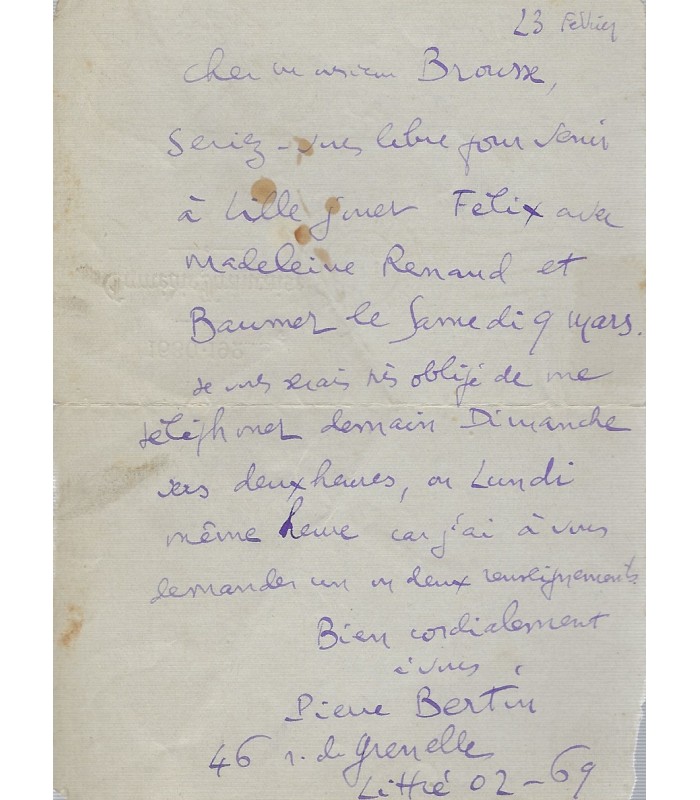 23 Février
Cher monsieur Brousse,
Seriez-vous libre pour venir
à Lille jouer Félix avec
Madeleine Renaud et
Baumer le Samedi 9 mars.
Je vous serais très obligé de me
téléphoner demain Dimanche
vers deux heures, ou Lundi
même heure car j'ai à vous
demander un ou deux renseignements
Bien cordialement
à vous
Pierre Bertin
46 r. de Grenelle
Littré 02-69